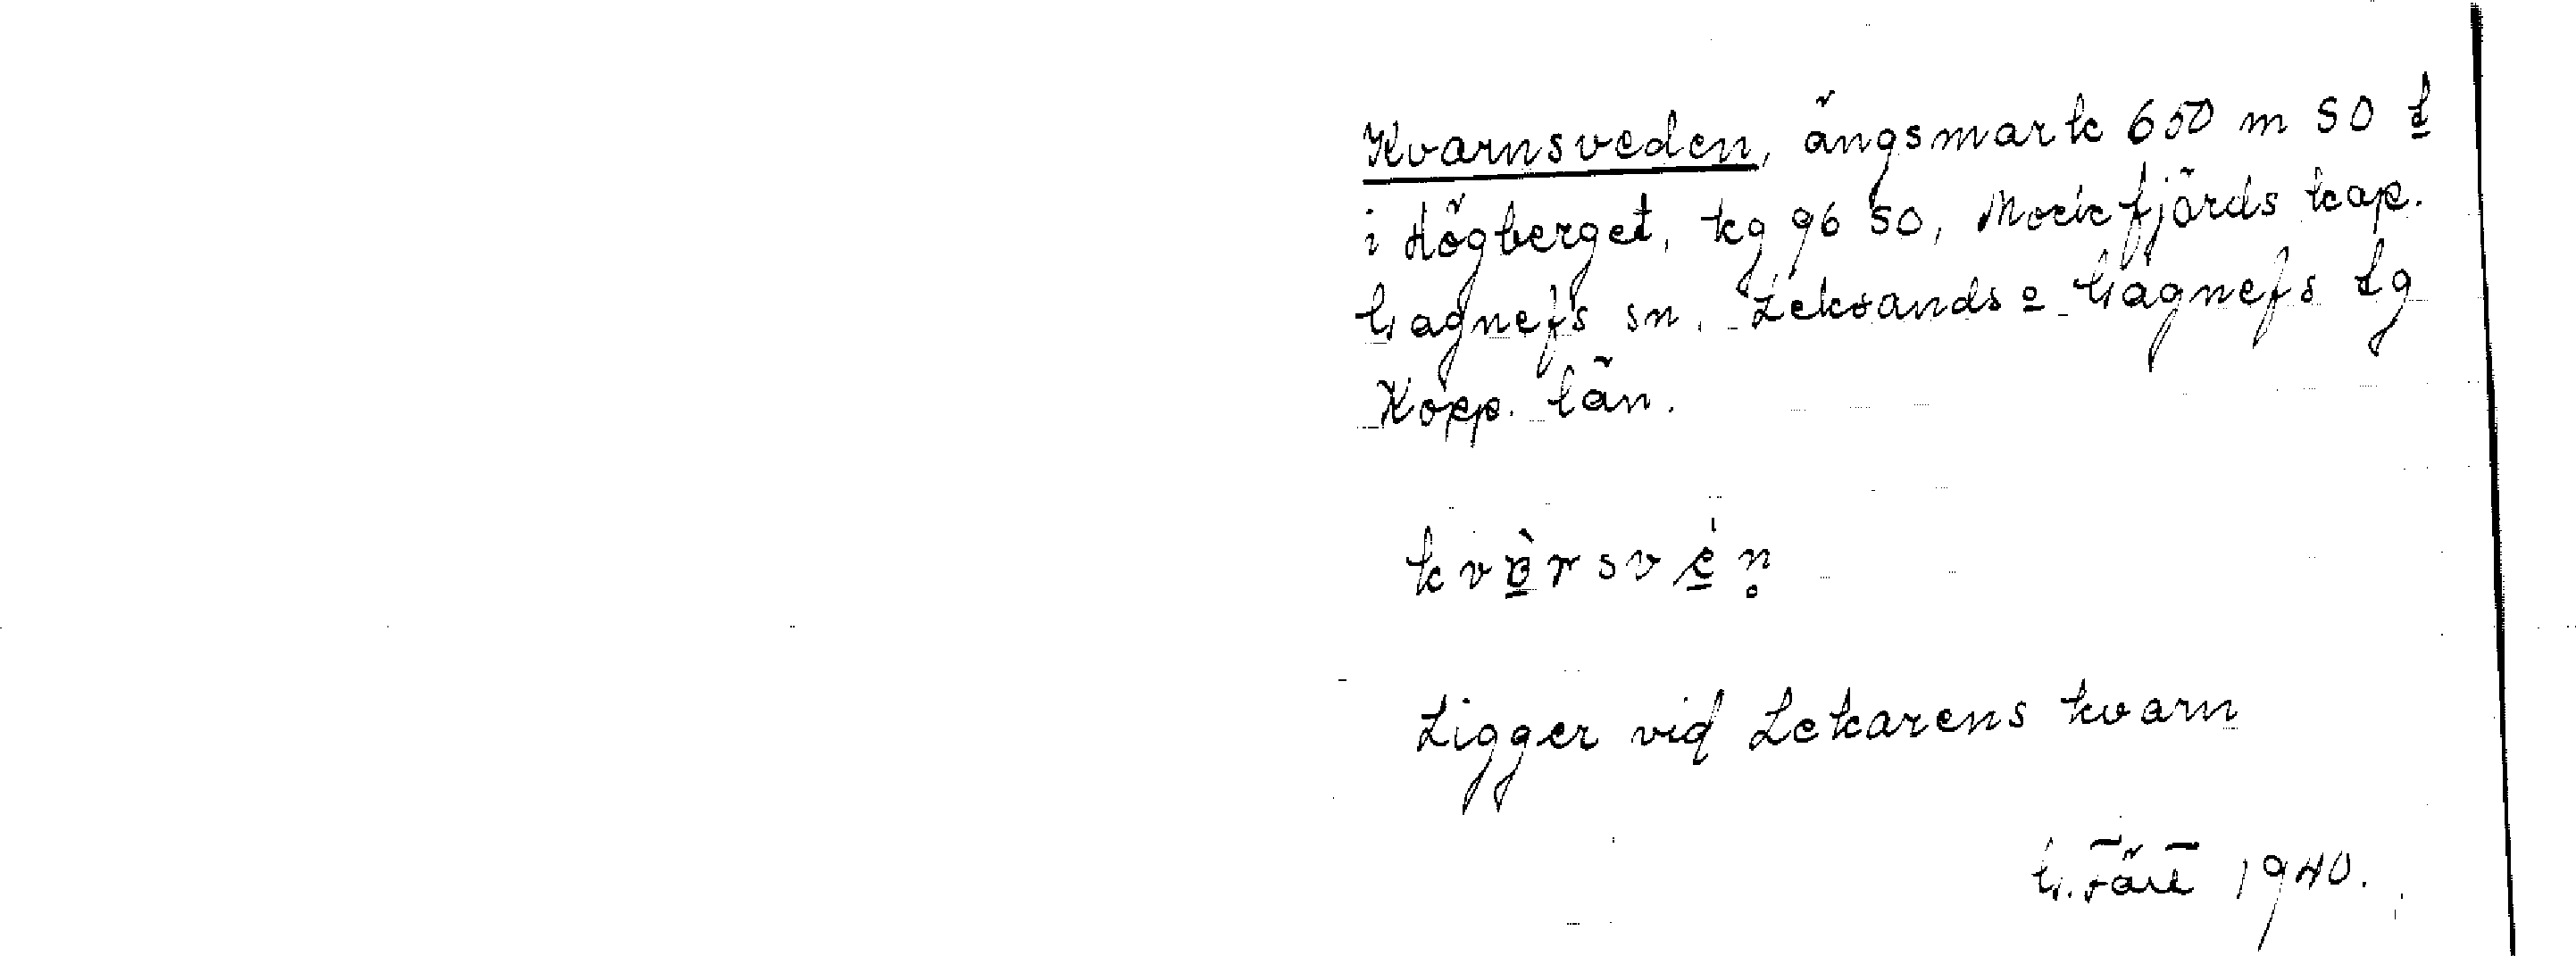 Kvarnsveden, ängsmark 650 m SO t
i Högberget, kg 96 SO, Mockfjärds kap.
Gagnefs sn. Leksands o Gagnefs tg
Kopp. län.
Ligger vid Lekarens kvarn
G. 1940.